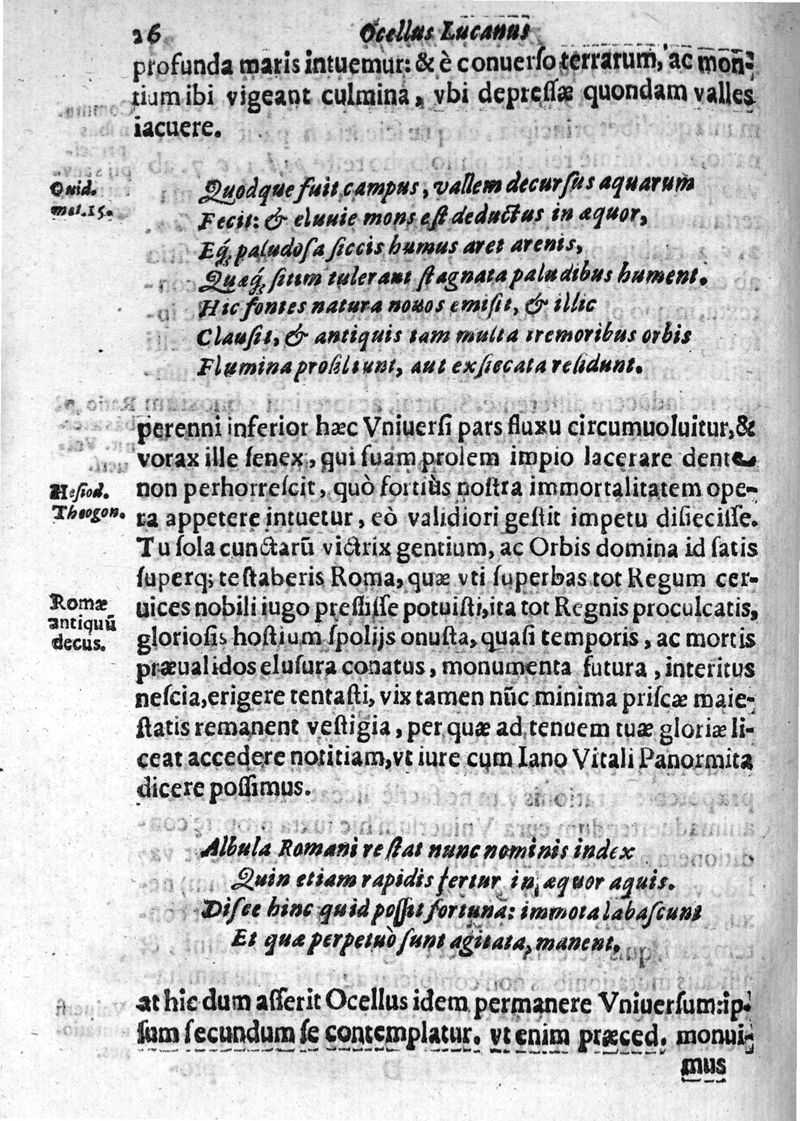 26 Ocellus Lucanus
profunda maris intuemur: & è conuerſo terrarum, ac mon-
tium ibi vigeant culmina, vbi depreſſæ quondam valles
iacuere.
Ouid.
met. 15.
Quodque fuit campus, vallem decurſus aquarum
Fecit: & eluuie mons eſt deductus in æquor,
Eq́; paludoſa ſiccis humus aret arenis,
Quæq́; ſitim tulerant ſtagnata paludibus hument.
Hic fontes natura nouos emiſit, & illic
Clauſit, & antiquis tam multa tremoribus orbis
Flumina proſiliunt, aut exſiccata reſidunt.
perenni inferior hæc Vniuerſi pars fluxu circumuoluitur, &
vorax ille ſenex, qui ſuam prolem impio lacerare dente
Heſiod.
Theogon.
non perhorreſcit, quò fortiùs noſtra immortalitatem ope-
ra appetere intuetur, eò validiori geſtit impetu diſieciſſe.
Tu ſola cunctarũ victrix gentium, ac Orbis domina id ſatis
ſuperq; teſtaberis Roma, quæ vti ſuperbas tot Regum cer-
Romæ
antiquũ
decus.
uices nobili iugo preſſiſſe potuiſti, ita tot Regnis proculcatis,
glorioſis hoſtium ſpolijs onuſta, quaſi temporis, ac mortis
præualidos eluſura conatus, monumenta futura, interitus
neſcia, erigere tentaſti, vix tamen nũc minima priſcæ maie-
ſtatis remanent veſtigia, per quæ ad tenuem tuæ gloriæ li-
ceat accedere notitiam, vt iure cum Iano Vitali Panormita
dicere poſſimus.
Albula Romani reſtat nunc nominis index
Quin etiam rapidis fertur in æquor aquis.
Diſce hinc quid poſſit fortuna: immota labaſcunt
Et quæ perpetuò ſunt agitata, manent.
at hic dum aſſerit Ocellus idem permanere Vniuerſum: ip-
ſum ſecundum ſe contemplatur. vt enim præced. monui-
mus